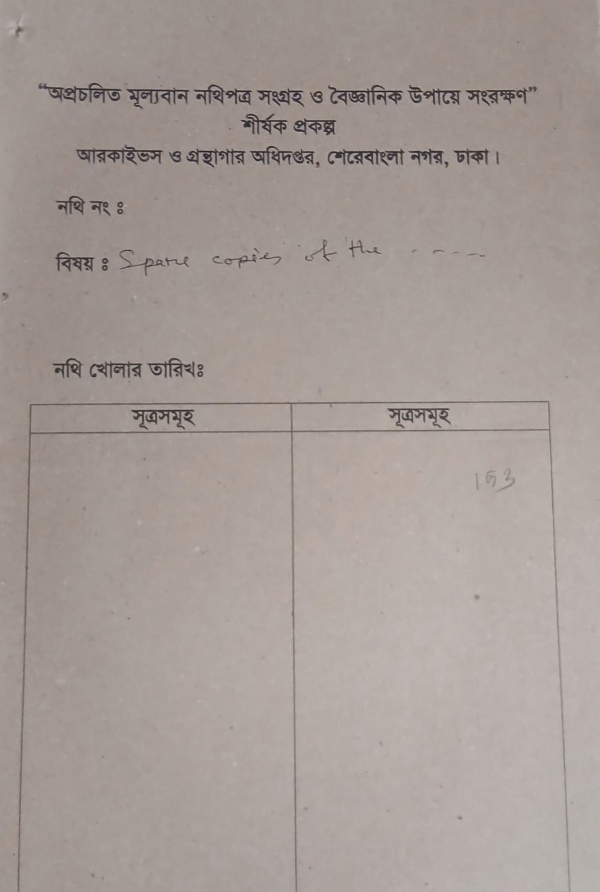 “অপ্রচলিত মূল্যবান নথিপত্র সংগ্রহ ও বৈজ্ঞানিক উপায়ে সংরক্ষণ”
শীর্ষক প্রকল্প
আরকাইভস ও গ্রন্থাগার অধিদপ্তর, শেরেবাংলা নগর, ঢাকা।
নথি নং ঃ
বিষয় ঃ Spare copies of the -----
নথি খোলার তারিখঃ
সূত্রসমূহ সূত্রসমূহ